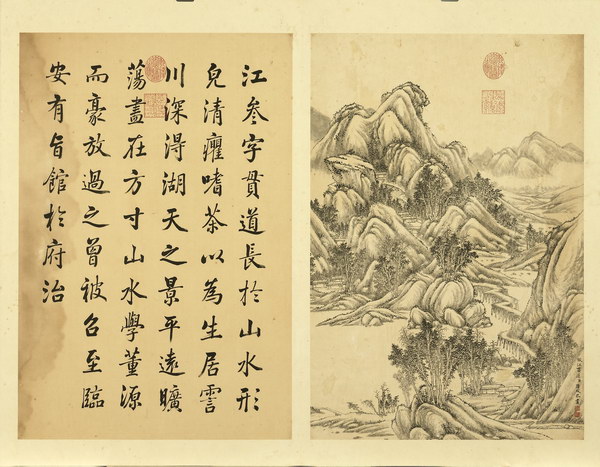 江參字貫道長於山水形
皃清癯嗜茶以為生居霅
川深淂湖天之景平遠曠
蕩盡在方寸山水學董源
而豪放過之曾被召至臨
安有旨館於府治